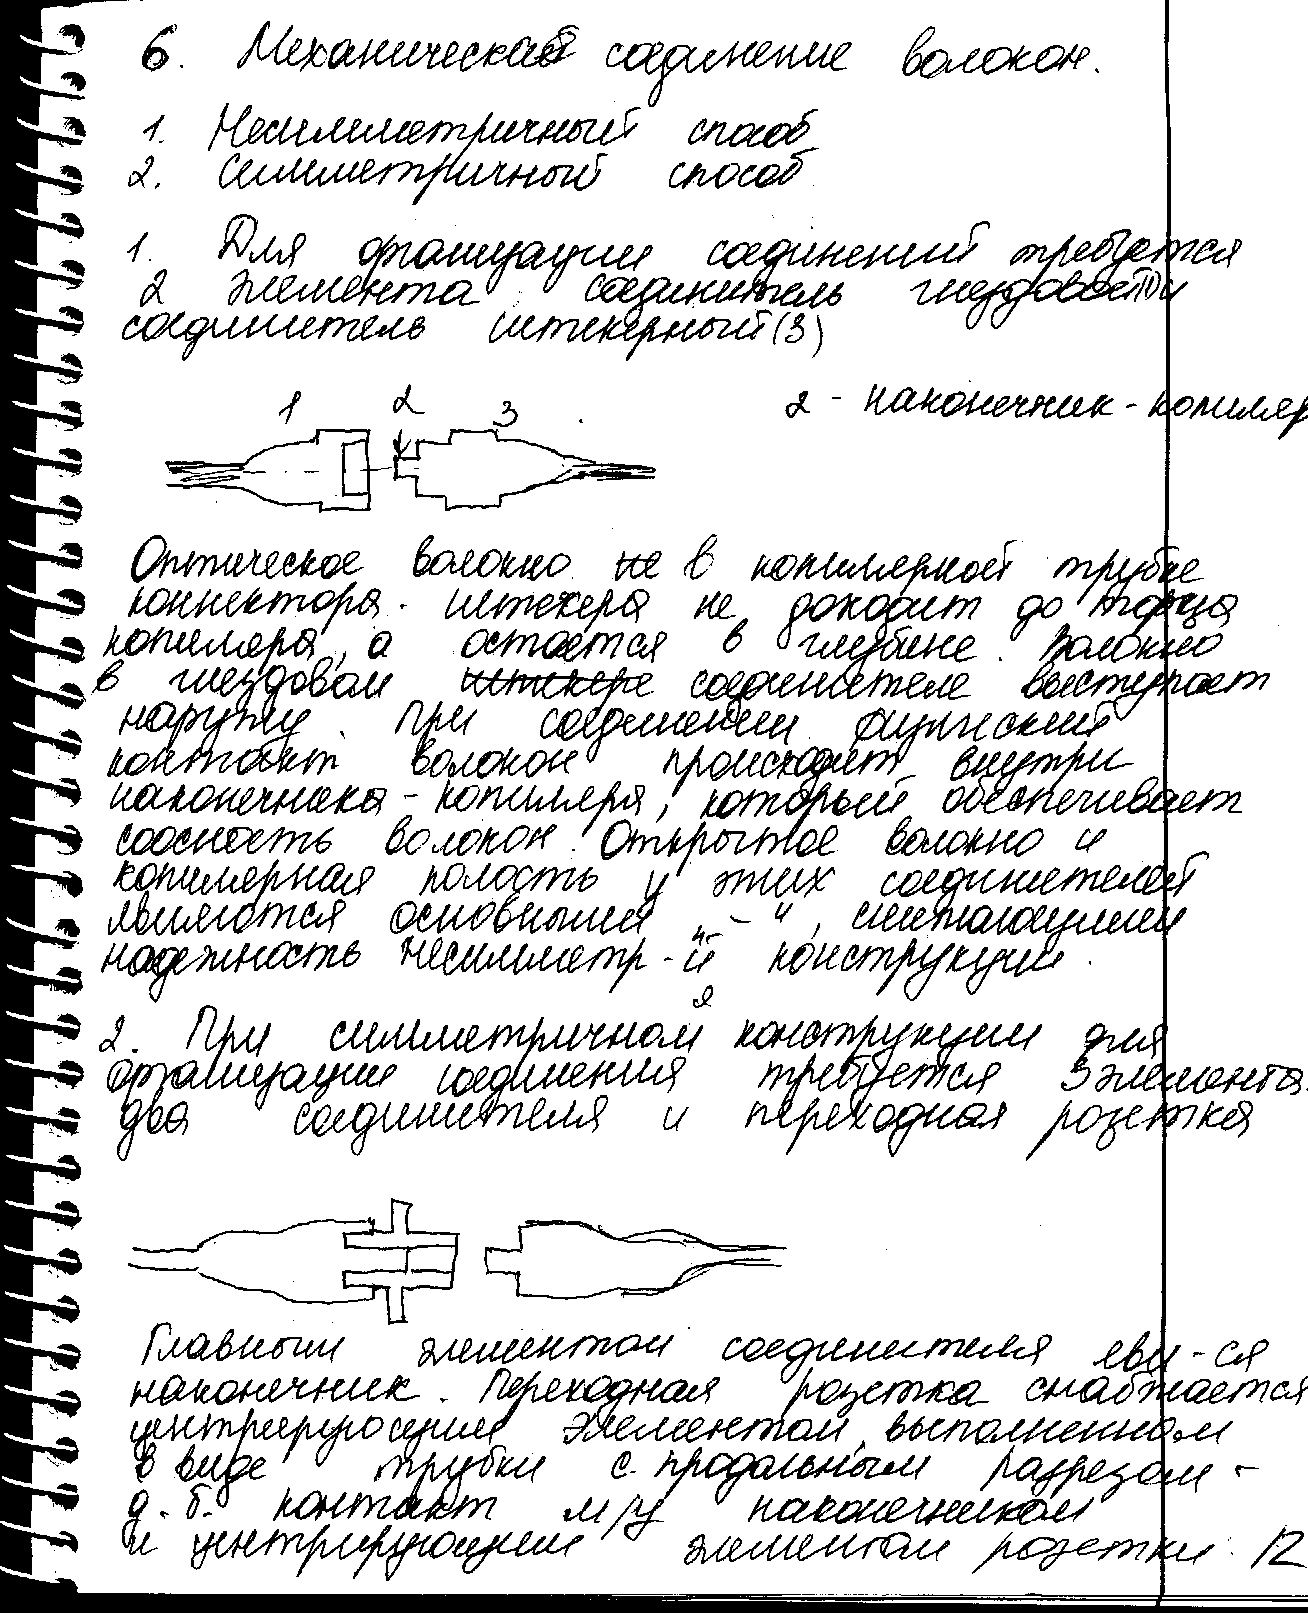 6. Механическая соединение волокон.
1. Несимметричный способ
2. Симметричный способ
1. Для организации соединений требуется
2 элемента соединитель гнездовой (1) и
соединитель штекерный (3)
1 2 3
2 - наконечник - копилляр
Оптическое волокно не в копиллярной трубке
коннектора - штекера не доходит до торца
копилляра, а остается в глубине. Волокно
в гнездовом штекере соединителе выступает
наружу. При соединении физический
контакт волокон происходит внутри
наконечника - копилляра, который обеспечивает
соосность волокон. Открытое волокно и
копиллярная полость у этих соединителей
являются основными „ - “, снижающими
надежность несимметр-й конструкции.
2. При симметричной конструкции для
организации соединения требуется 3 элемента:
два соединителя и переходная розетка
Главным элементом соединителя явл-ся
наконечник. Переходная розетка снабжается
центрирующим элементом, выполненном
в виде трубки с продольным разрезом -
д. б. контакт м/у наконечником
и центрирующим элементом розетки. 12